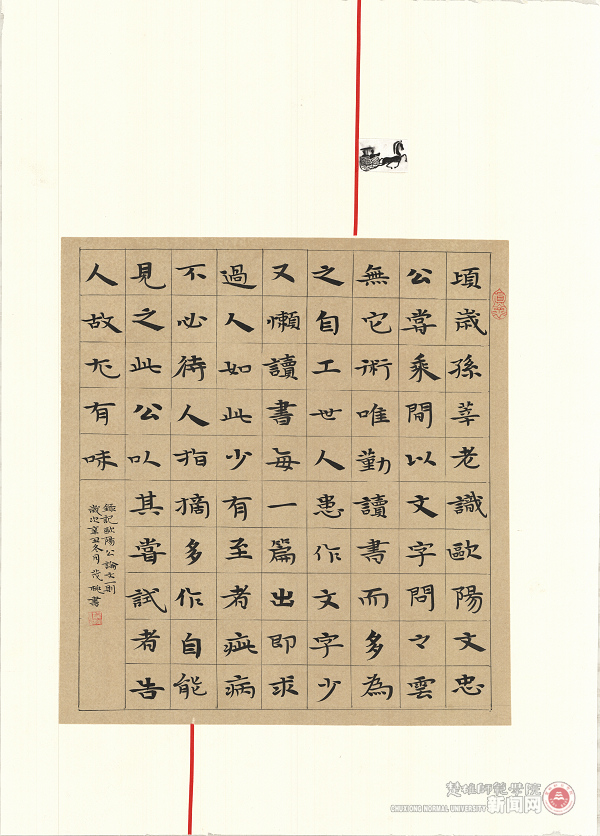 頃歲孫莘老識歐陽文忠
公嘗乘間以文字問之雲
無它術唯勤讀書而多為
之自工世人患作文字少
又懶讀書每一篇出即求
過人如此少有至者疵病
不必待人指摘多作自能
見之此公以其嘗試者告
人故尤有味
錄記歐陽公論文一則
歲次辛丑冬月茂書
楚雄師範學院
CHUXIONG NORMAL UNIVERSITY 新闻网